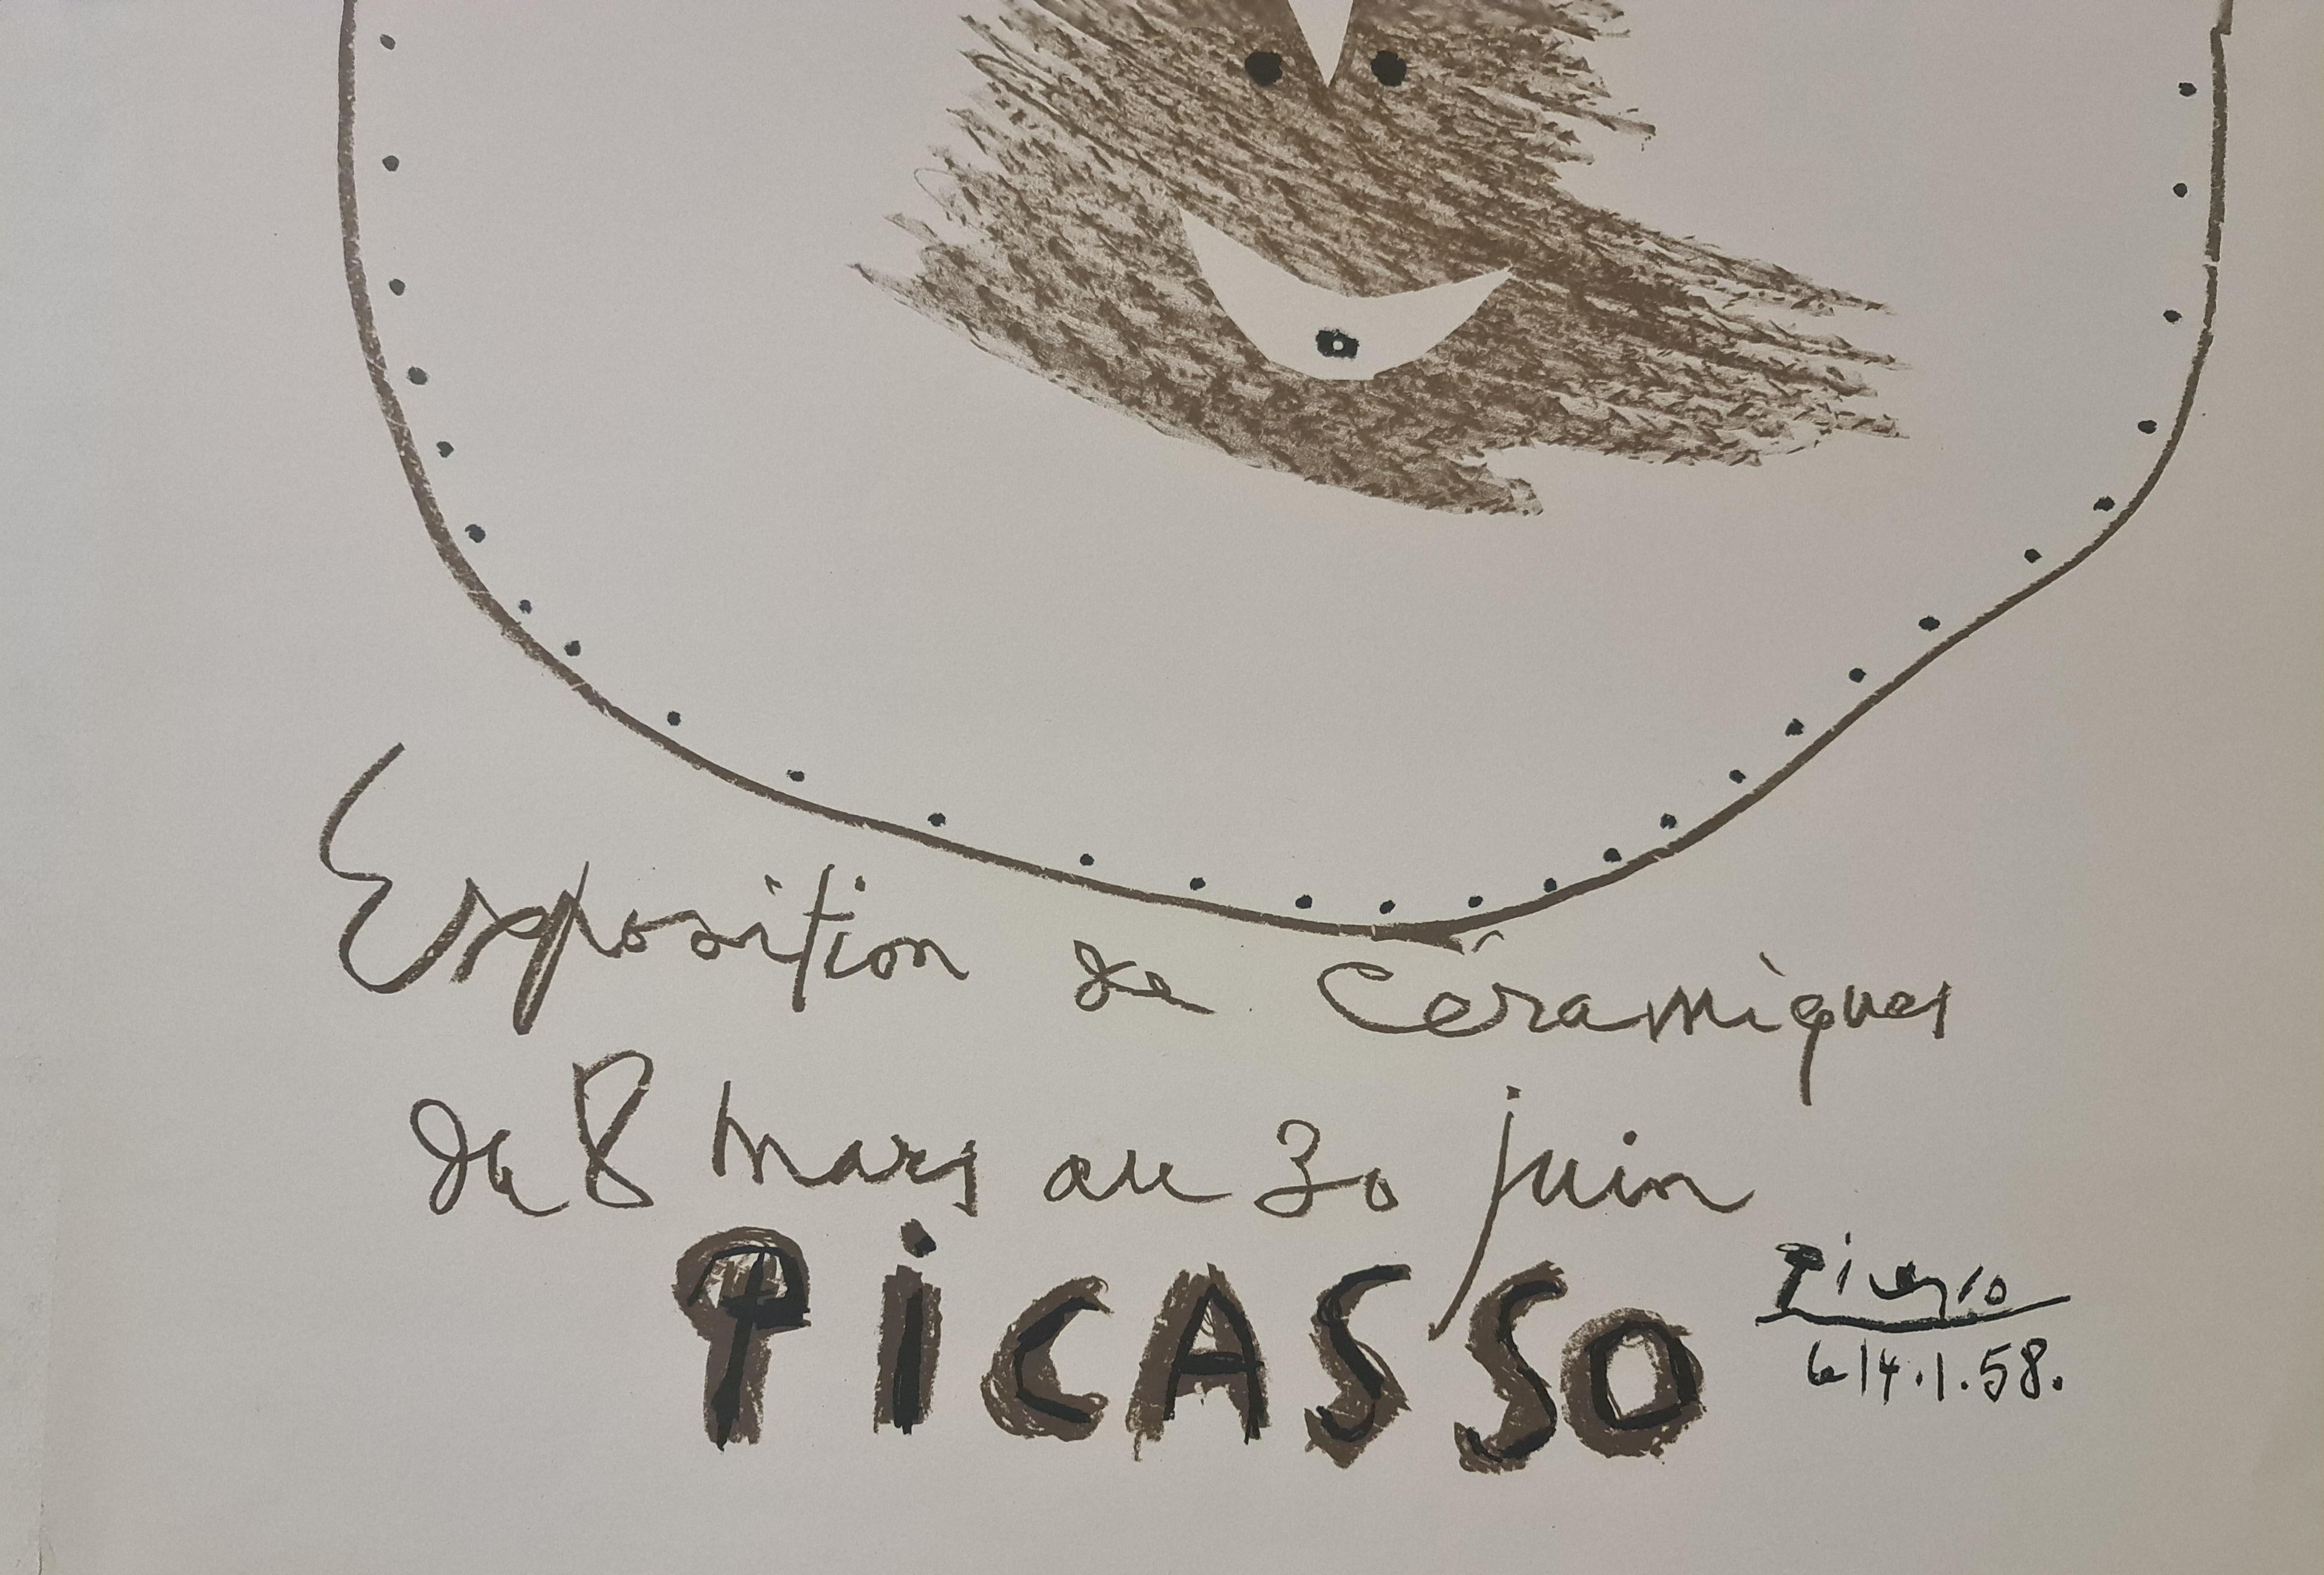 Exposition de Céramiques
du 8 mars au 30 juin
PiCASSO
Picasso
le 14.1.58.